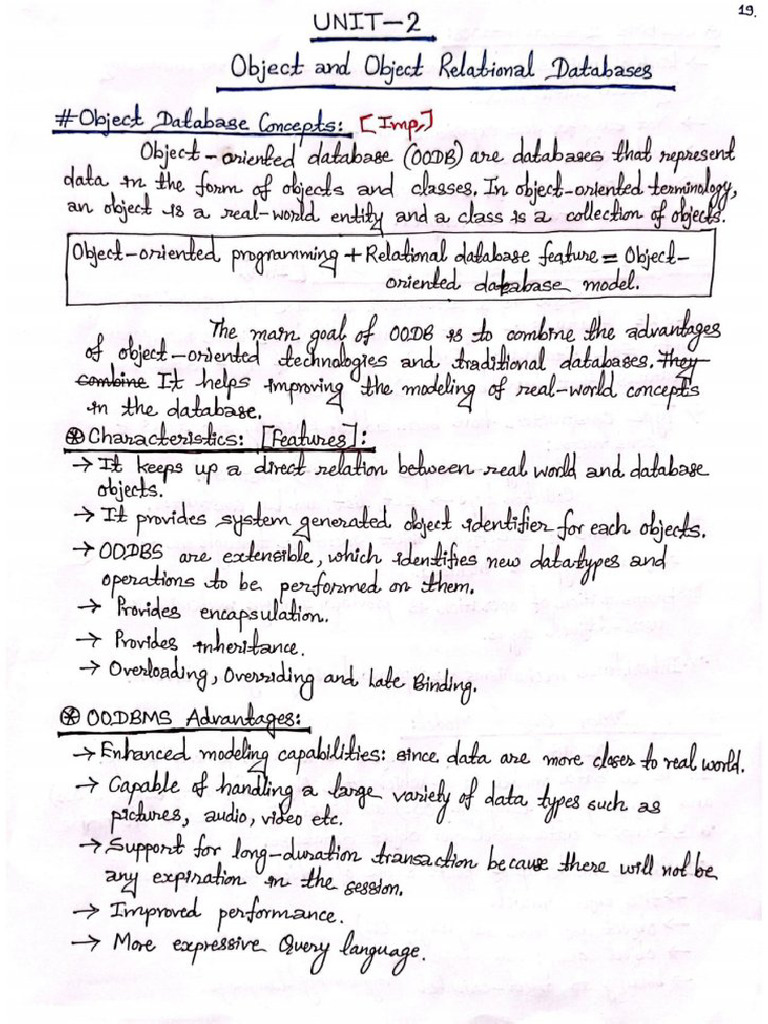 19.
UNIT-2
Object and Object Relational Databases
#Object Database Concepts: [Imp.]
Object-oriented database (OODB) are databases that represent
data in the form of objects and classes. In object-oriented terminology,
an object is a real-world entity and a class is a collection of objects.
Object-oriented programming + Relational database feature = Object-
oriented database model.
The main goal of OODB is to combine the advantages
of object-oriented technologies and traditional databases. They
combine It helps improving the modeling of real-world concepts
in the database.
⊛ Characteristics: [Features]:
→ It keeps up a direct relation between real world and database
objects.
→ It provides system generated object identifier for each objects.
→ OODBS are extensible, which identifies new datatypes and
operations to be performed on them.
→ Provides encapsulation.
→ Provides inheritance.
→ Overloading, Overriding and Late Binding.
⊛ OODBMS Advantages:
→ Enhanced modeling capabilities: since data are more closer to real world.
→ Capable of handling a large variety of data types such as
pictures, audio, video etc.
→ Support for long-duration transaction because there will not be
any expiration in the session.
→ Improved performance.
→ More expressive Query language.